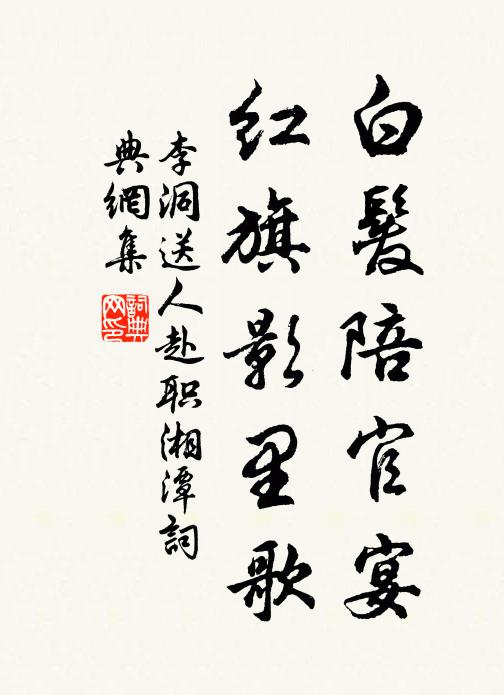 白髮陪官宴
红旗影里歌
李洞送人赴职湘潭詞
典網集
詞典
网印